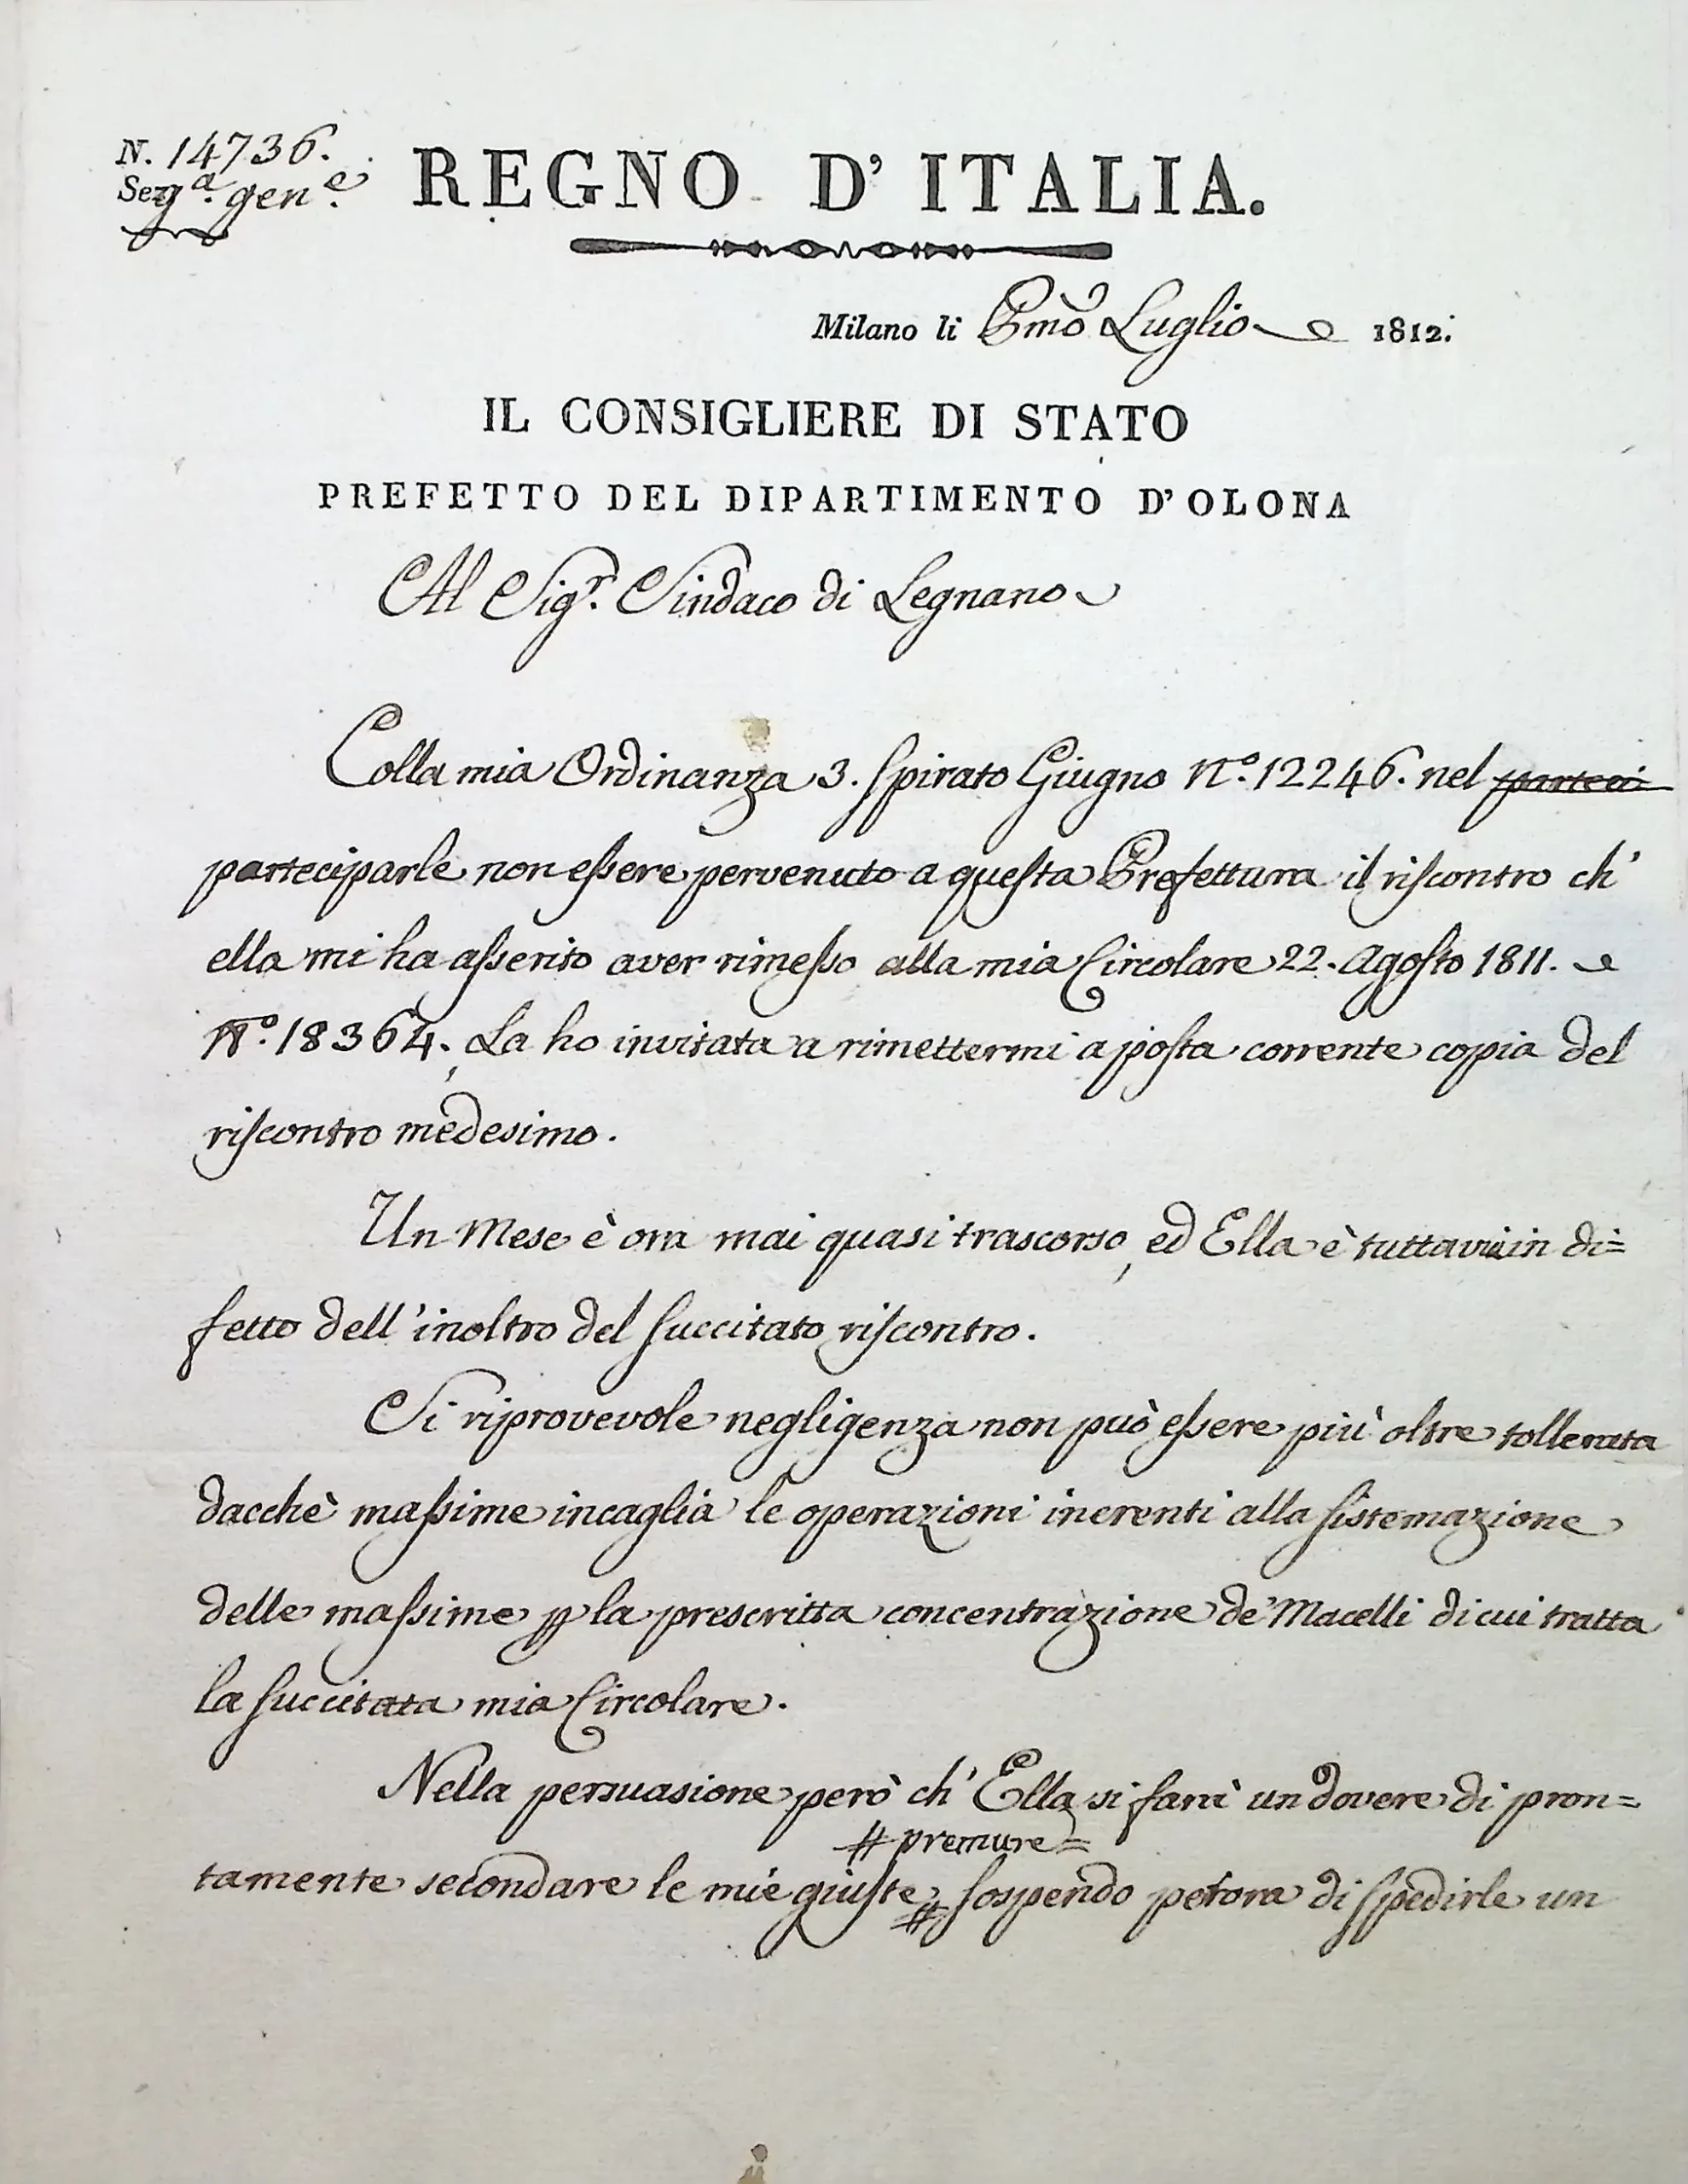 N. 14736.
Sezg.ª gen.e
REGNO D' ITALIA.
Milano li Pmo Luglio 1812.
IL CONSIGLIERE DI STATO
PREFETTO DEL DIPARTIMENTO D'OLONA
Al Sigr. Sindaco di Legnano
Colla mia Ordinanza 3. spirato Giugno N.º 12246. nel parteci
parteciparle non essere pervenuto a questa Prefettura il riscontro ch'
ella mi ha asserito aver rimesso alla mia Circolare 22. Agosto 1811.
N.º 18364., La ho invitata a rimettermi a posta corrente copia del
riscontro medesimo.
Un Mese è ora mai quasi trascorso, ed Ella è tuttavia in di=
fetto dell'inoltro del succitato riscontro.
Si riprovevole negligenza non può essere più oltre tollerata
dacchè massime incaglia le operazioni inerenti alla sistemazione
delle massime p la prescritta concentrazione de' Macelli di cui tratta
la succitata mia Circolare.
Nella persuasione però ch' Ella si farà un dovere di pron=
# premure=
tamente secondare le mie giuste # sospendo petora di spedirle un